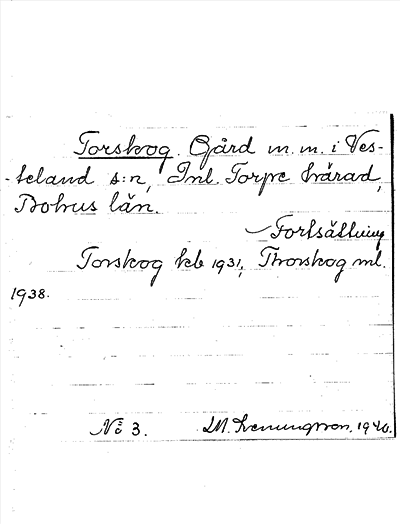 Torskog. Gård m. m. i Ves-
-teland s:n, Inl. Torpe härad,
Bohus län.
Fortsättning
Torskog kb 1931, Thorskog ml.
1938.
No 3. M. 1940.